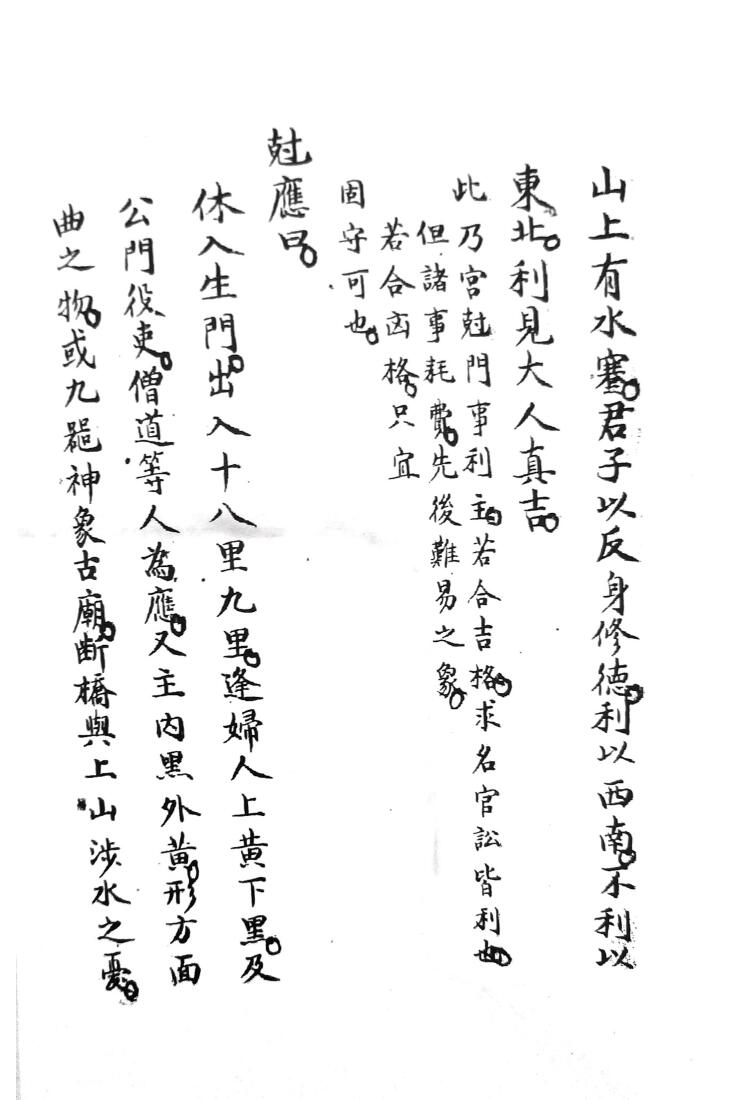 山上有水蹇。君子以反身修德。利以西南。不利以
東北。利見大人真吉。
此乃宮尅門事利主。若合吉格。求名官訟皆利也。
但諸事耗費。先後難易之象。
若合凶格。只宜
固守可也。
尅應曰。
休入生門。出入十八里九里。逢婦人上黃下黑。及
公門役吏。僧道等人為應。又主內黑外黃。形方面
曲之物。或九龆神象古廟。断橋與上山涉水之憂。